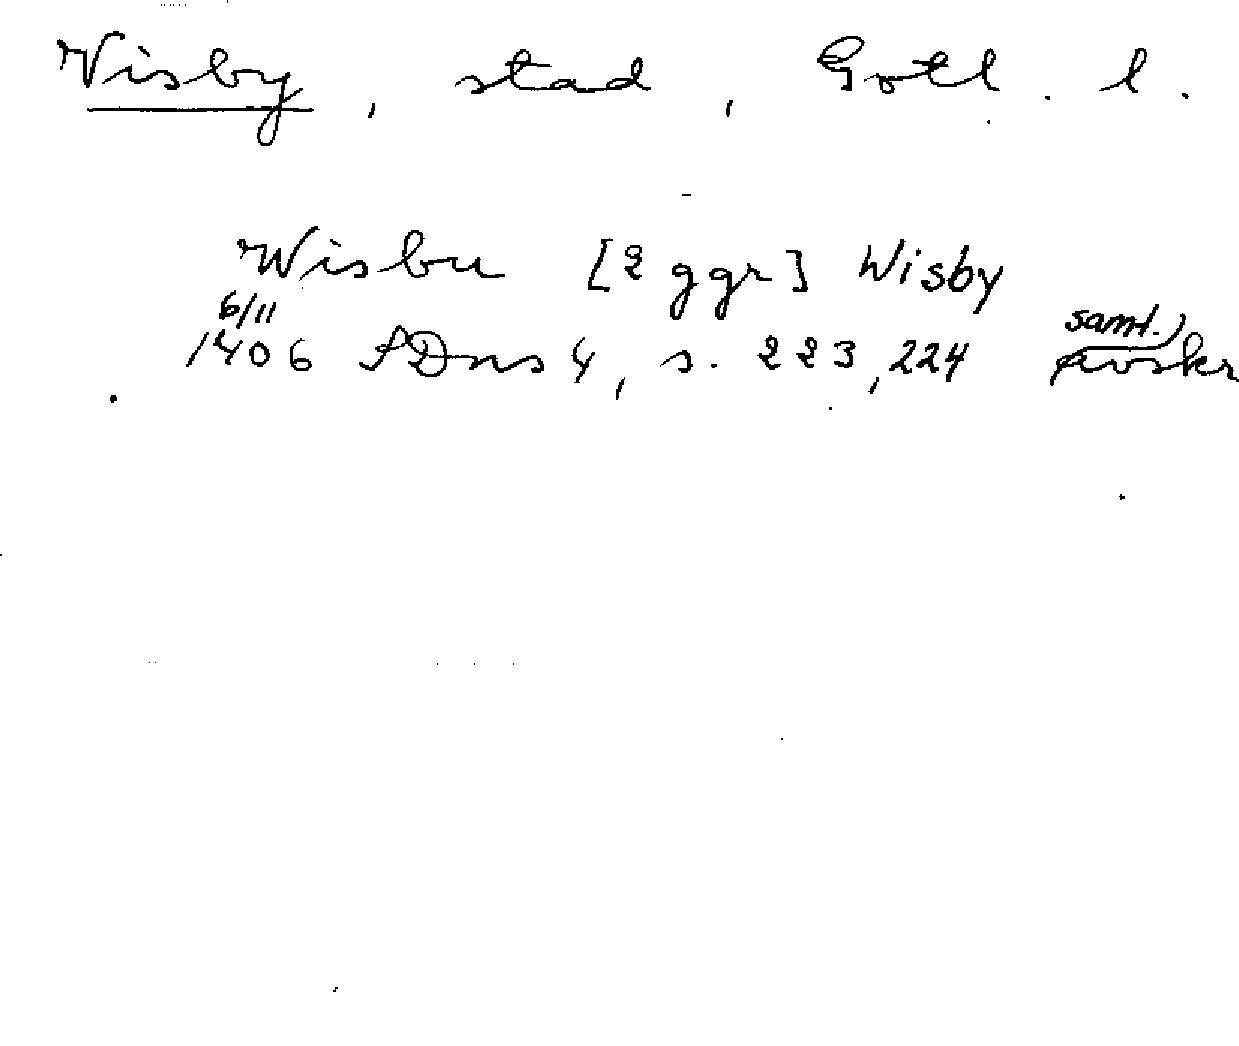 Visby, stad, Gotl. l.
Wisbu [2 ggr] Wisby
6/11 samt.
1406 SDns 4, s. 223, 224 avskr